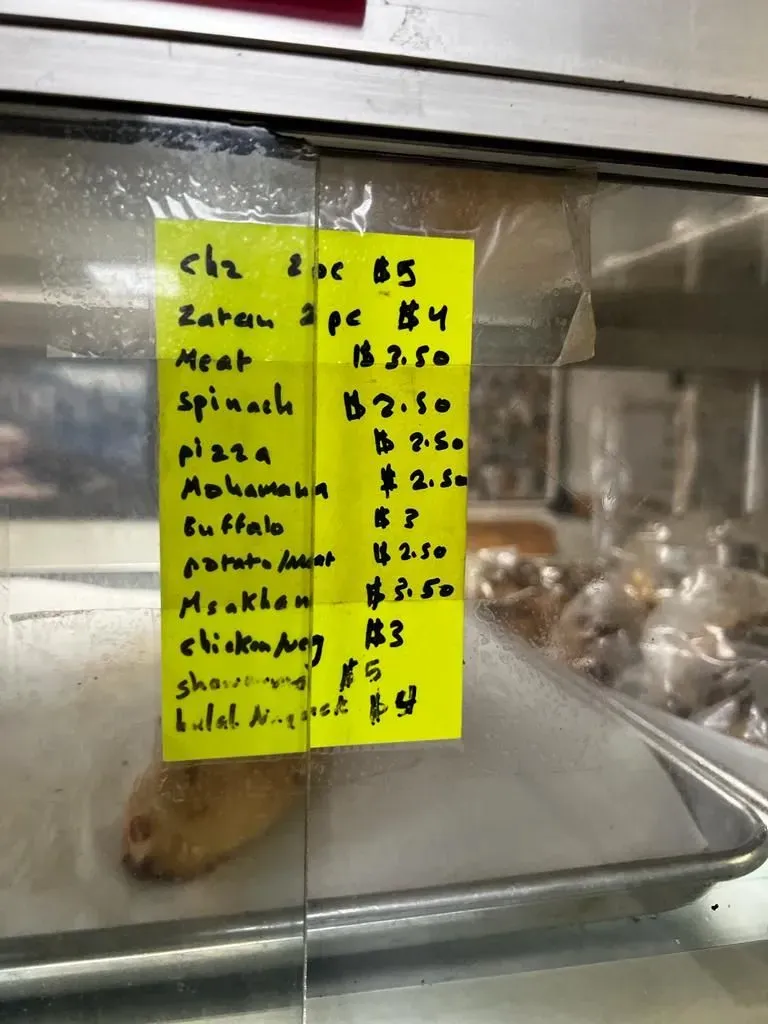 chz 2pc $5
Zataru 2 pc $4
Meat $3.50
spinach $2.50
pizza $2.50
Mohamana $2.50
Buffalo $3
potato/meat $2.50
Msakhan $3.50
chicken/veg $3
$5
halal $4